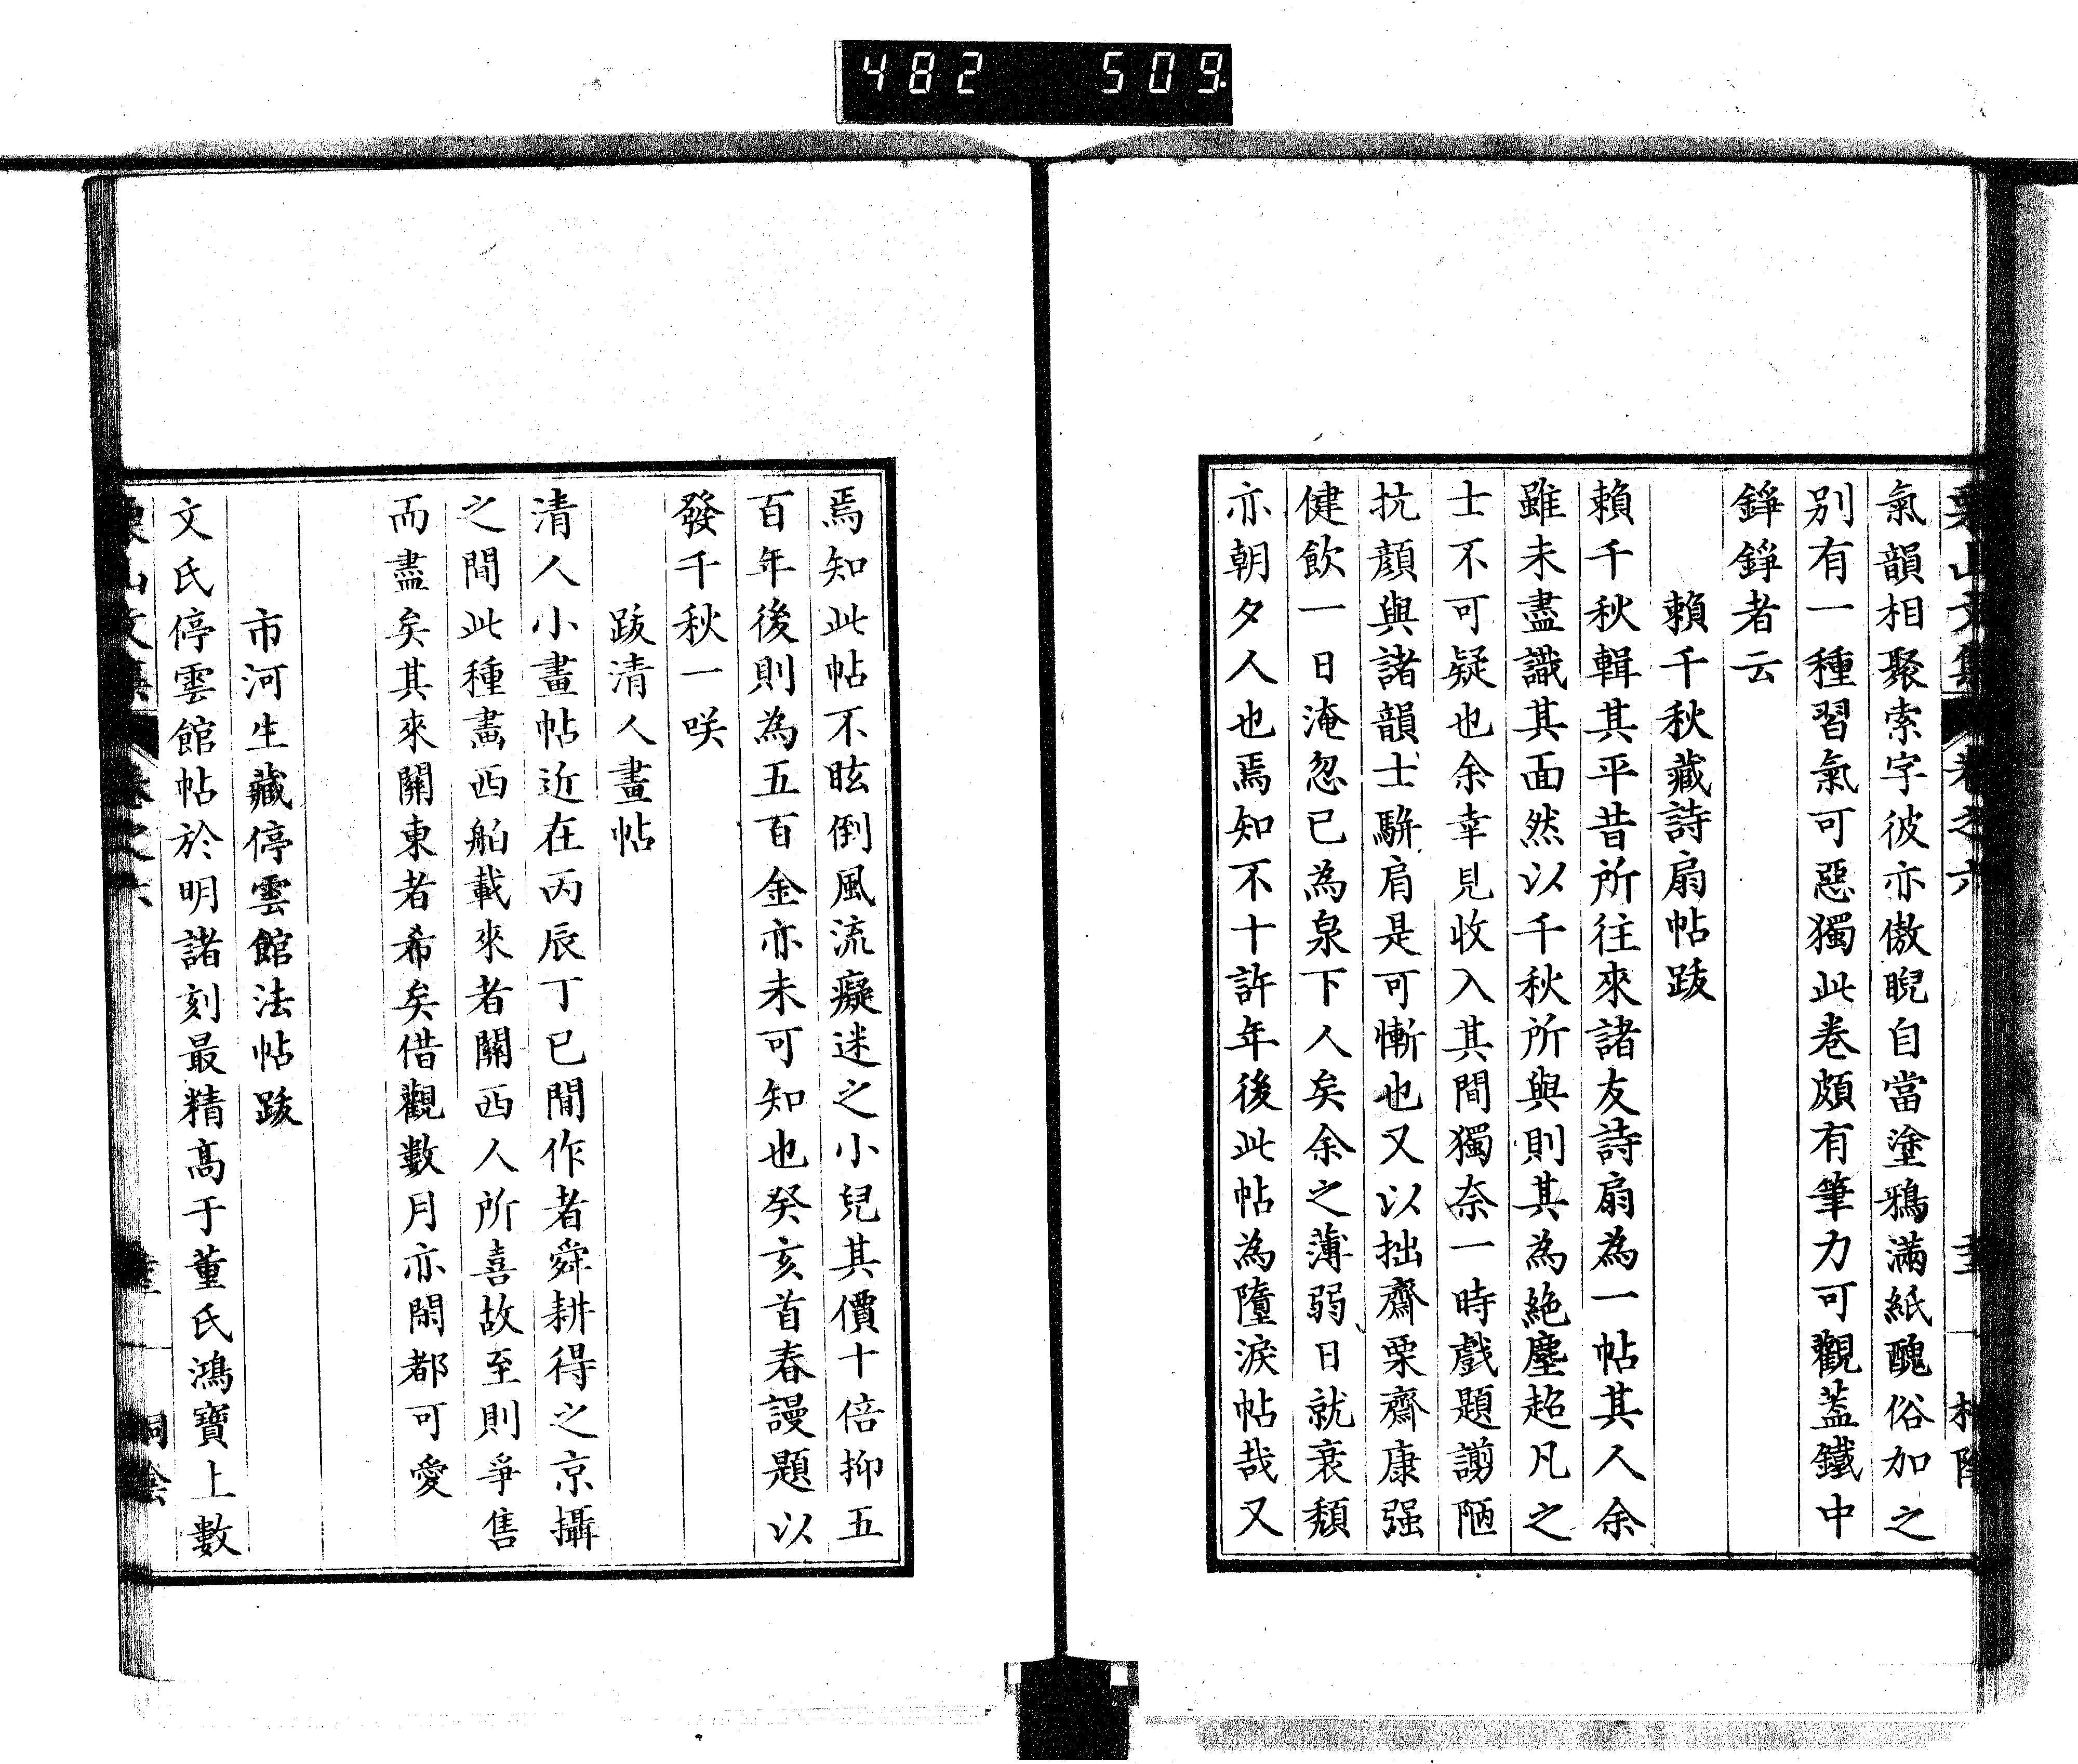 482 509.
氣韻相聚索字彼亦傲睨自當塗鴉滿紙醜俗加之
別有一種習氣可惡獨此卷頗有筆力可觀蓋鐵中
錚錚者云
賴千秋藏詩扇帖跋
賴千秋輯其平昔所往來諸友詩扇為一帖其人余
雖未盡識其面然以千秋所與則其為絶塵超凡之
士不可疑也余幸見收入其間獨奈一時戲題謭陋
抗顔與諸韻士騈肩是可慚也又以拙齋栗齋康强
健飲一日淹忽已為泉下人矣余之薄弱日就衰頽
亦朝夕人也焉知不十許年後此帖為墮淚帖哉又
焉知此帖不眩倒風流癡迷之小兒其價十倍抑五
百年後則為五百金亦未可知也癸亥首春謾題以
發千秋一咲
跋清人畫帖
清人小畫帖近在丙辰丁巳間作者舜耕得之京攝
之間此種畵西舶載來者關西人所喜故至則爭售
而盡矣其來關東者希矣借觀數月亦閑都可愛
市河生藏停雲館法帖跋
文氏停雲館帖於明諸刻最精髙于董氏鴻寶上數